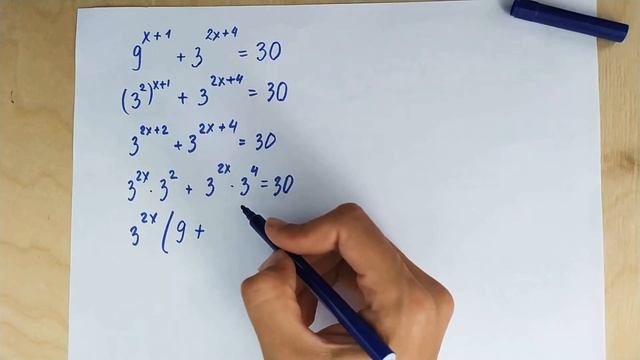 9^{x+1} + 3^{2x+4} = 30
(3^2)^{x+1} + 3^{2x+4} = 30
3^{2x+2} + 3^{2x+4} = 30
3^{2x} · 3^2 + 3^{2x} · 3^4 = 30
3^{2x} (9 +